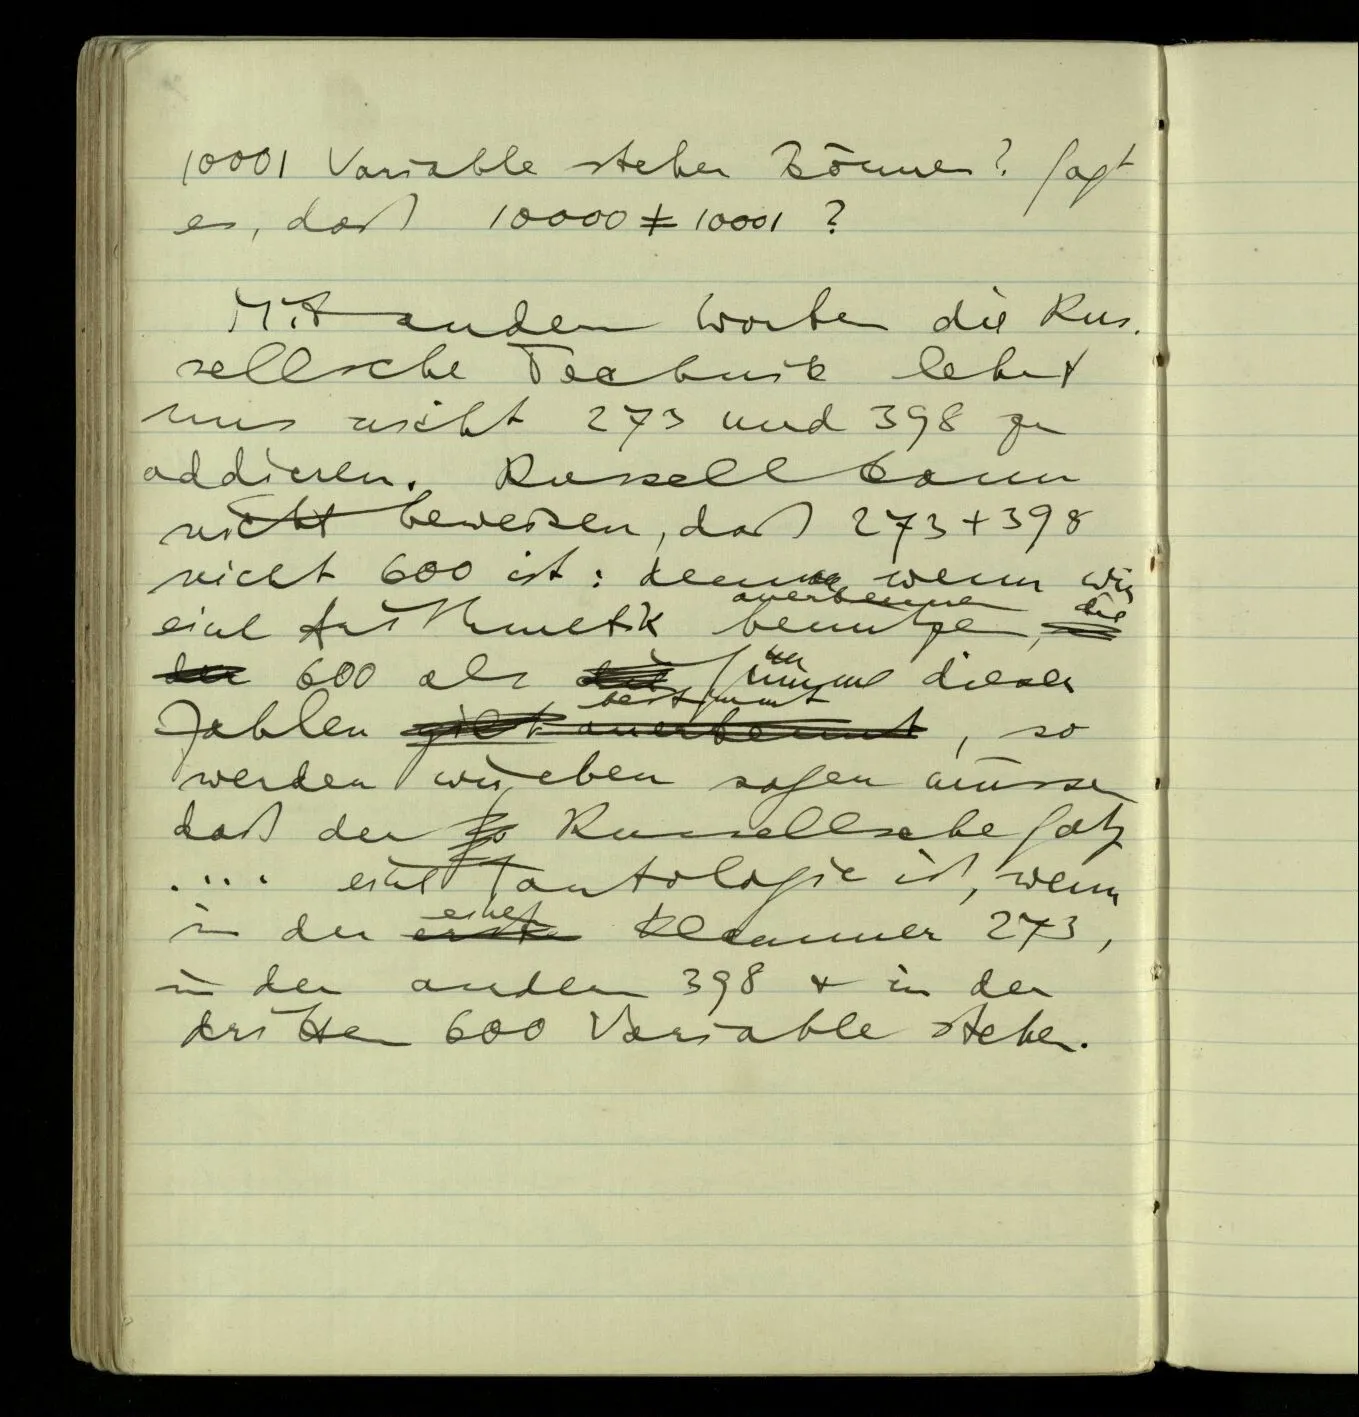 10001 Variable stehen können? Sagt
es, daß 10000 ≠ 10001 ?
Mit andern Worten die Rus-
sellsche Technik lehrt
uns nicht 273 und 398 zu
addieren. Russell kann
nicht beweisen, daß 273 + 398
nicht 600 ist: denn wenn wir
anerkennen die
eine Arithmetik benutzen,
der 600 als die Summe dieser
bestimmt
Zahlen gilt anerkennt, so
werden wir eben sagen müssen
daß der So Russellsche Satz
.... eine Tautologie ist, wenn
einen
in der ersten Klammer 273,
in der andern 398 + in der
dritten 600 Variable stehen.